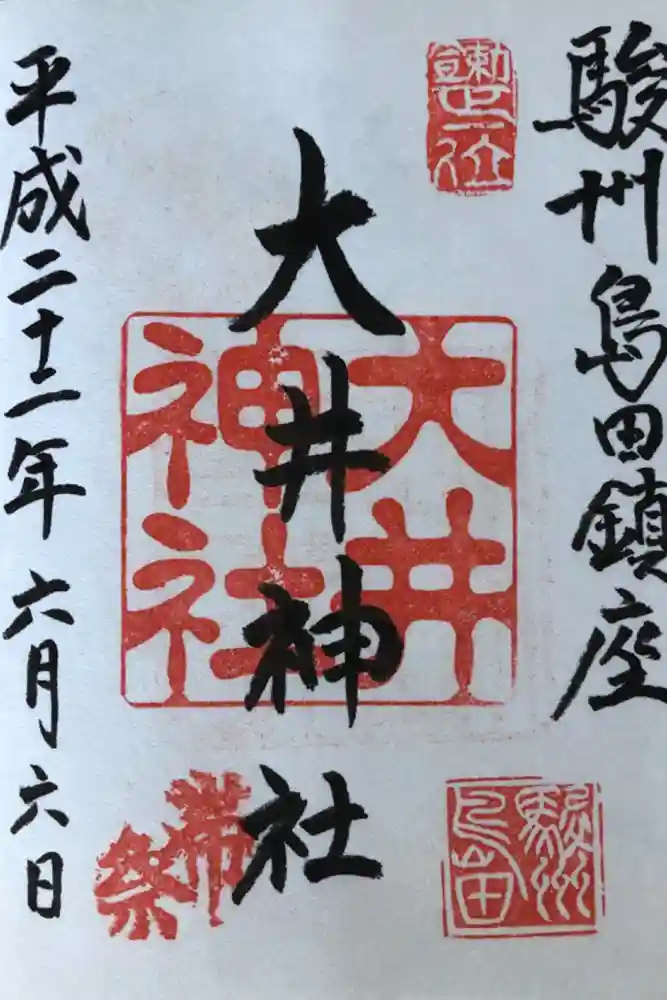 駿州島田鎮座
大井神社
平成二十二年六月六日
大井
神社
帯
祭
駿州